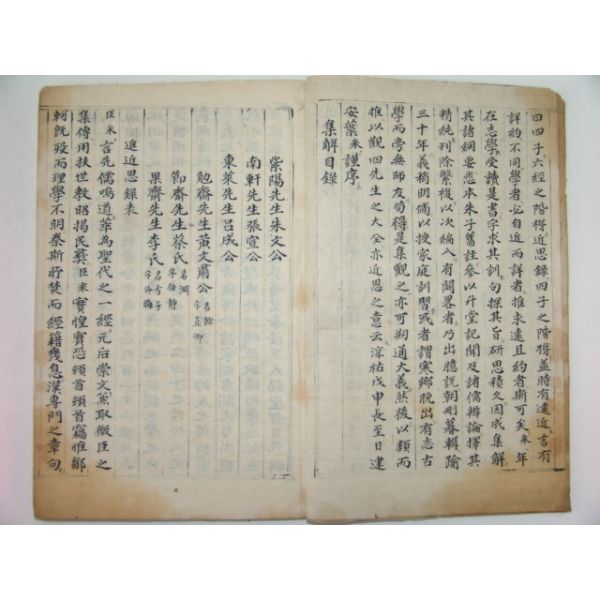 曰四子六經之階梯近思錄四子之階梯盖時有遠近言有
詳約不同學者必自近而詳者推求遠且約者斯可矣采年
在志學受讀是書字求其訓句探其旨研思積久因成集解
其諸綱要悉本朱子舊註參以升堂記聞及諸儒辨論擇其
精純刊除繁複以次編入有闕畧者乃出臆說朝刪暮輯踰
三十年義稍明備以授家庭訓習或者謂寒鄉晩出有志古
學而旁無師友苟得是集觀之亦可刱通大義然後以類而
推以觀四先生之大全亦近思之意云淳祐戊申長至日建
安葉采謹序
集解目録
紫陽先生朱文公
南軒先生張宣公
東萊先生呂成公
勉齋先生黄文肅公 名榦 字直卿
節齋先生蔡氏 名淵 字伯靜
果齋先生李氏 名方子 字公晦
進近思録表
臣采言先儒鳴道萃爲聖代之一經元后崇文兼取微臣之
集傳用扶世教昭揭民彛臣采實惶實恐頓首頓首竊惟鄒
軻旣歿而理學不明秦斯所焚而經籍幾息漢專門之章句